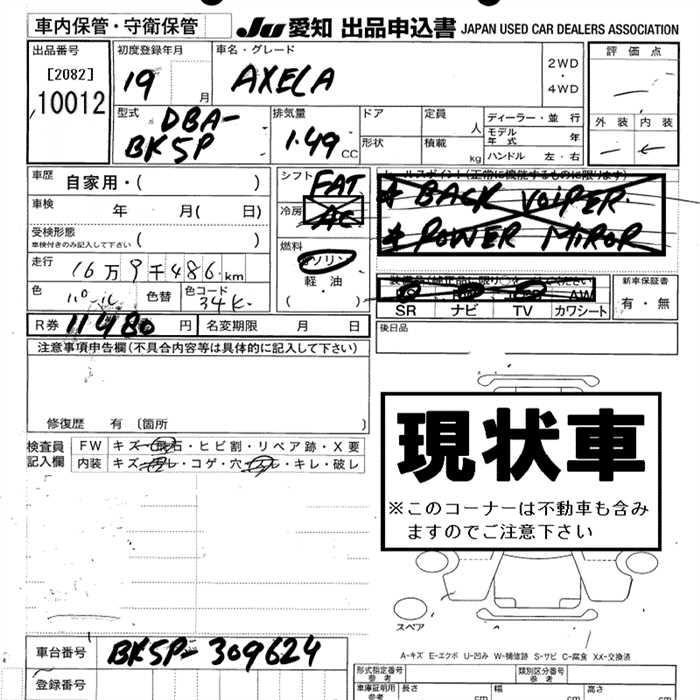 車内保管・守衛保管
JU 愛知 出品申込書 JAPAN USED CAR DEALERS ASSOCIATION
出品番号
[2082]
10012
初度登録年月
19 月
車名・グレード
AXELA
2WD
・
4WD
評価点
外装 内装
型式
DBA-
BK5P
排気量
1.49 CC
ドア
形状
定員
人
積載
kg
ディーラー・並行
モデル年式 年
ハンドル 左・右
車歴 自家用・( )
車検 年 月( 日)
受検形態 ( )
車検付きのみ記入して下さい
走行 16万9千486km
色 パール 色替 色コード 34K
シフト FAT
冷房 AC
燃料
ガソリン
軽・油
・( )
セールスポイント(正常に機能するものに限ります)
* BACK VOIPER
* POWER MIROR
SR ナビ TV カワシート
AW
新車保証書
有・無
R券 11480 円 名変期限 月 日
後日品
注意事項申告欄(不具合内容等は具体的に記入して下さい)
修復歴 有〔箇所 〕
検査員
記入欄
FW キズ・飛石・ヒビ割・リペア跡・X要
内装 キズ・スレ・コゲ・穴・スレ・キレ・破レ
現状車
※このコーナーは不動車も含み
ますのでご注意下さい
スペア
A-キズ E-エクボ U-凹み W-補修跡 S-サビ C-腐食 XX-交換済
車台番号 BK5P-309624
登録番号
形式指定番号
参考
類別区分番号
参考
車庫証明用
参考
長さ cm
幅 cm
高さ cm